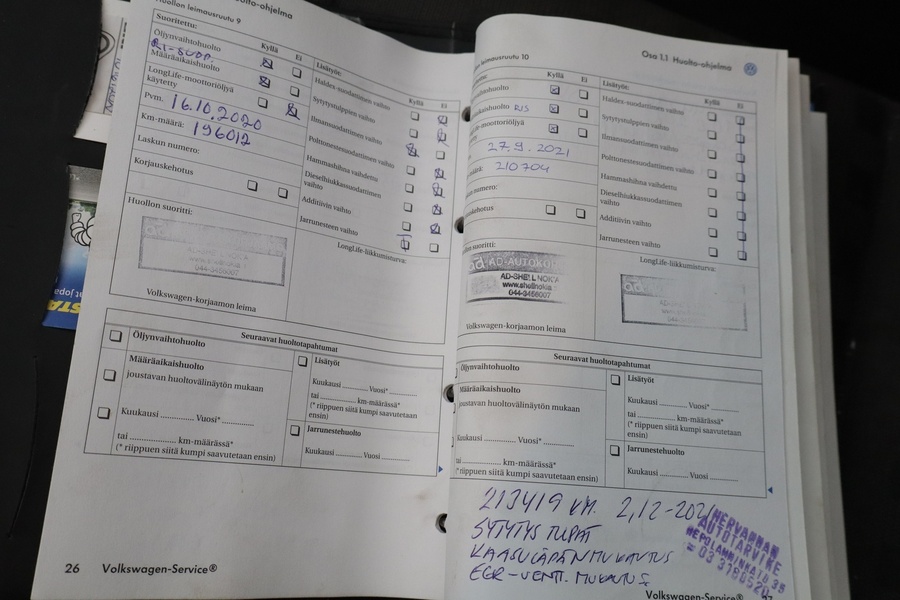 ulto-ohjelma
Huollon leimausruutu 9
Suoritettu:
Kyllä Ei
Öljynvaihtohuolto
Määräaikaishuolto
LongLife-moottoriöljyä
käytetty
Pvm. 16.10.2020
Km-määrä: 196012
Laskun numero:
Korjauskehotus
Huollon suoritti:
www.shellnokia
044-3456007
Volkswagen-korjaamon leima
Lisätyöt:
Kyllä Ei
Haldex-suodattimen vaihto
Sytytystulppien vaihto
Ilmansuodattimen vaihto
Polttonestesuodattimen vaihto
Hammashihna vaihdettu
Dieselhiukkassuodattimen
vaihto
Additiivin vaihto
Jarrunesteen vaihto
LongLife-liikkumisturva:
Seuraavat huoltotapahtumat
Öljynvaihtohuolto
Määräaikaishuolto
joustavan huoltovälinäytön mukaan
Kuukausi ............. Vuosi* .........
tai .................... km-määrässä*
(* riippuen siitä kumpi saavutetaan ensin)
Lisätyöt
Kuukausi ......... Vuosi* .........
tai .................. km-määrässä*
(* riippuen siitä kumpi saavutetaan
ensin)
Jarrunestehuolto
Kuukausi ......... Vuosi .........
26 Volkswagen-Service®
Osa 1.1 Huolto-ohjelma
leimausruutu 10
Kyllä Ei
27.9. 2021
210704
AD-AUTOKOR
AD-SHELL NOKIA
www.shellnokia
044-3456007
Volkswagen-korjaamon leima
Lisätyöt:
Kyllä Ei
Haldex-suodattimen vaihto
Sytytystulppien vaihto
Ilmansuodattimen vaihto
Polttonestesuodattimen vaihto
Hammashihna vaihdettu
Dieselhiukkassuodattimen
vaihto
Additiivin vaihto
Jarrunesteen vaihto
LongLife-liikkumisturva:
Seuraavat huoltotapahtumat
Öljynvaihtohuolto
Määräaikaishuolto
joustavan huoltovälinäytön mukaan
Kuukausi ............. Vuosi* .........
.................... km-määrässä*
(* riippuen siitä kumpi saavutetaan ensin)
Lisätyöt
Kuukausi ......... Vuosi* .........
tai .................. km-määrässä*
(* riippuen siitä kumpi saavutetaan
ensin)
Jarrunestehuolto
Kuukausi ......... Vuosi .........
213419 KM. 2,12-2021
SYTYTYS TULPAT
KAASULÄPÄN MUKAUTUS
EGR-VENT. MUKAUTUS
HERVANNAN
AUTOTARVIKE
Volkswagen-Service®